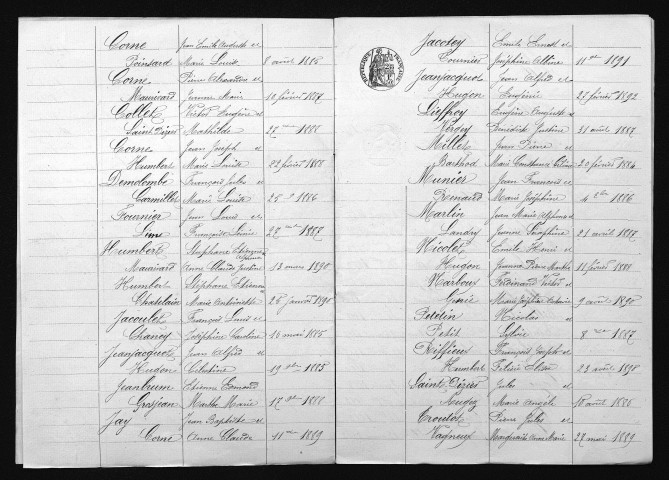 Corne Jean Emile Auguste et
Poinsard Marie Louise 8 avril 1885
Corne Pierre Alexandre et
Mauivard Jeanne Marie 10 février 1887
Collet Victor Eugène et
Saint Dizier Mathilde 27 1888
Corne Jean Joseph et
Humbert Marie Louise 22 février 1888
Demolombe François Jules et
Carmillet Marie Louise 25 1886
Fournier Jean Louis et
Lime Françoise 20 1887
Humbert Stéphane
Mauivard Anne Claude Justine 13 mars 1890
Humbert Stéphane Etienne
Chatelain Marie Antoinette 28 janvier 1890
Jacoulet François Louis et
Chancy Joséphine Caroline 16 mai 1885
Jeanjacquot Jean Alfred et
Hugon Célestine 19 1885
Jeanbrun Etienne Edmond
Grosjean Marthe Marie 17 1888
Jay Jean Baptiste et
Corne Anne Claude 11 1889
Jacotey Emile Ernest et
Tournier Joséphine 11 1891
Jeanjacquot Jean Alfred et
Hugon Eugénie 27 février 1892
Lieffroy Eugène Auguste et
Vergey Bénédicte Justine 31 août 1887
Millet Jean Pierre et
Barthod Marie Constance 20 février 1886
Munier Jean François et
Renaud Marie Joséphine 4 1886
Marlin Jean Marie Alphonse et
Landry Jeanne Joséphine 21 avril 1887
Nicolet Emile Henri et
Hugon Jeanne Pierre Marthe 11 février 1888
Marboux Ferdinand Victor et
Génie Marie 9 avril 1890
Petetin Nicolas et
Petit Sylvie 8 1887
Riffieux François Joseph et
Humbert Félicie 23 avril 1890
Saint Dizier Jules et
Marie Angèle 18 août 1886
Troutot Pierre Jules et
Vagneux Marguerite Anne Marie 27 mai 1889